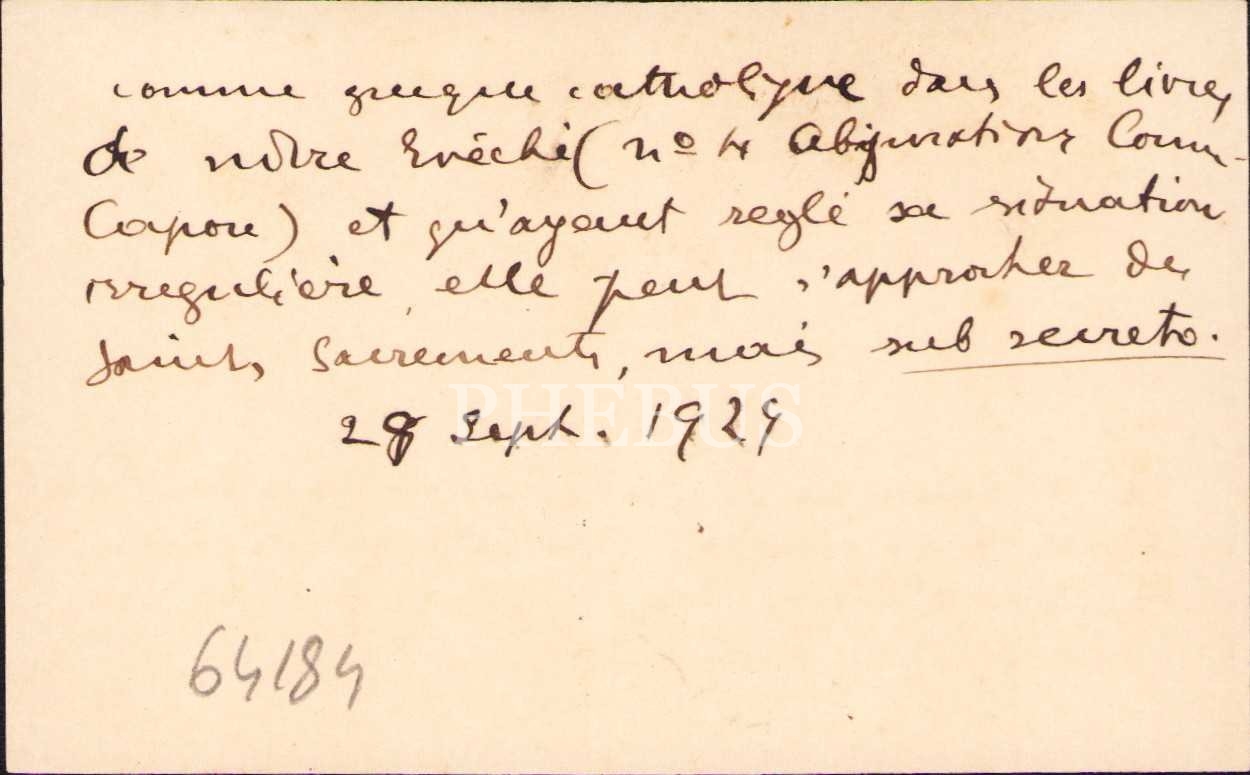 comme grecque catholique dans les livres
de notre Evêché (nº 4 Abjurations Coum-
Capou) et qu'ayant reglé sa situation
irregulière, elle peut s'approcher des
saints Sacrements, mais sub secreto.
28 Sept. 1929
PHEBUS
64184